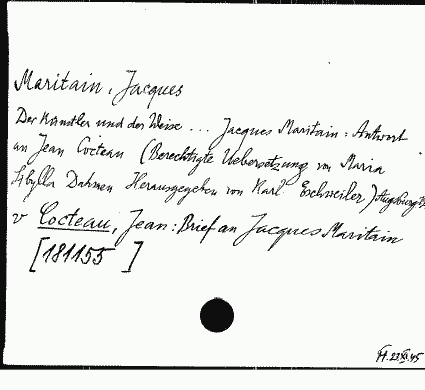 Maritain, Jacques
Der Künstler und der Weise ... Jacques Maritain: Antwort
an Jean Cocteau (Berechtigte Uebersetzung von Maria
Sibylla Dahmen Herausgegeben von Karl Eschweiler) Augsburg
v Cocteau, Jean: Brief an Jacques Maritain
[181155]